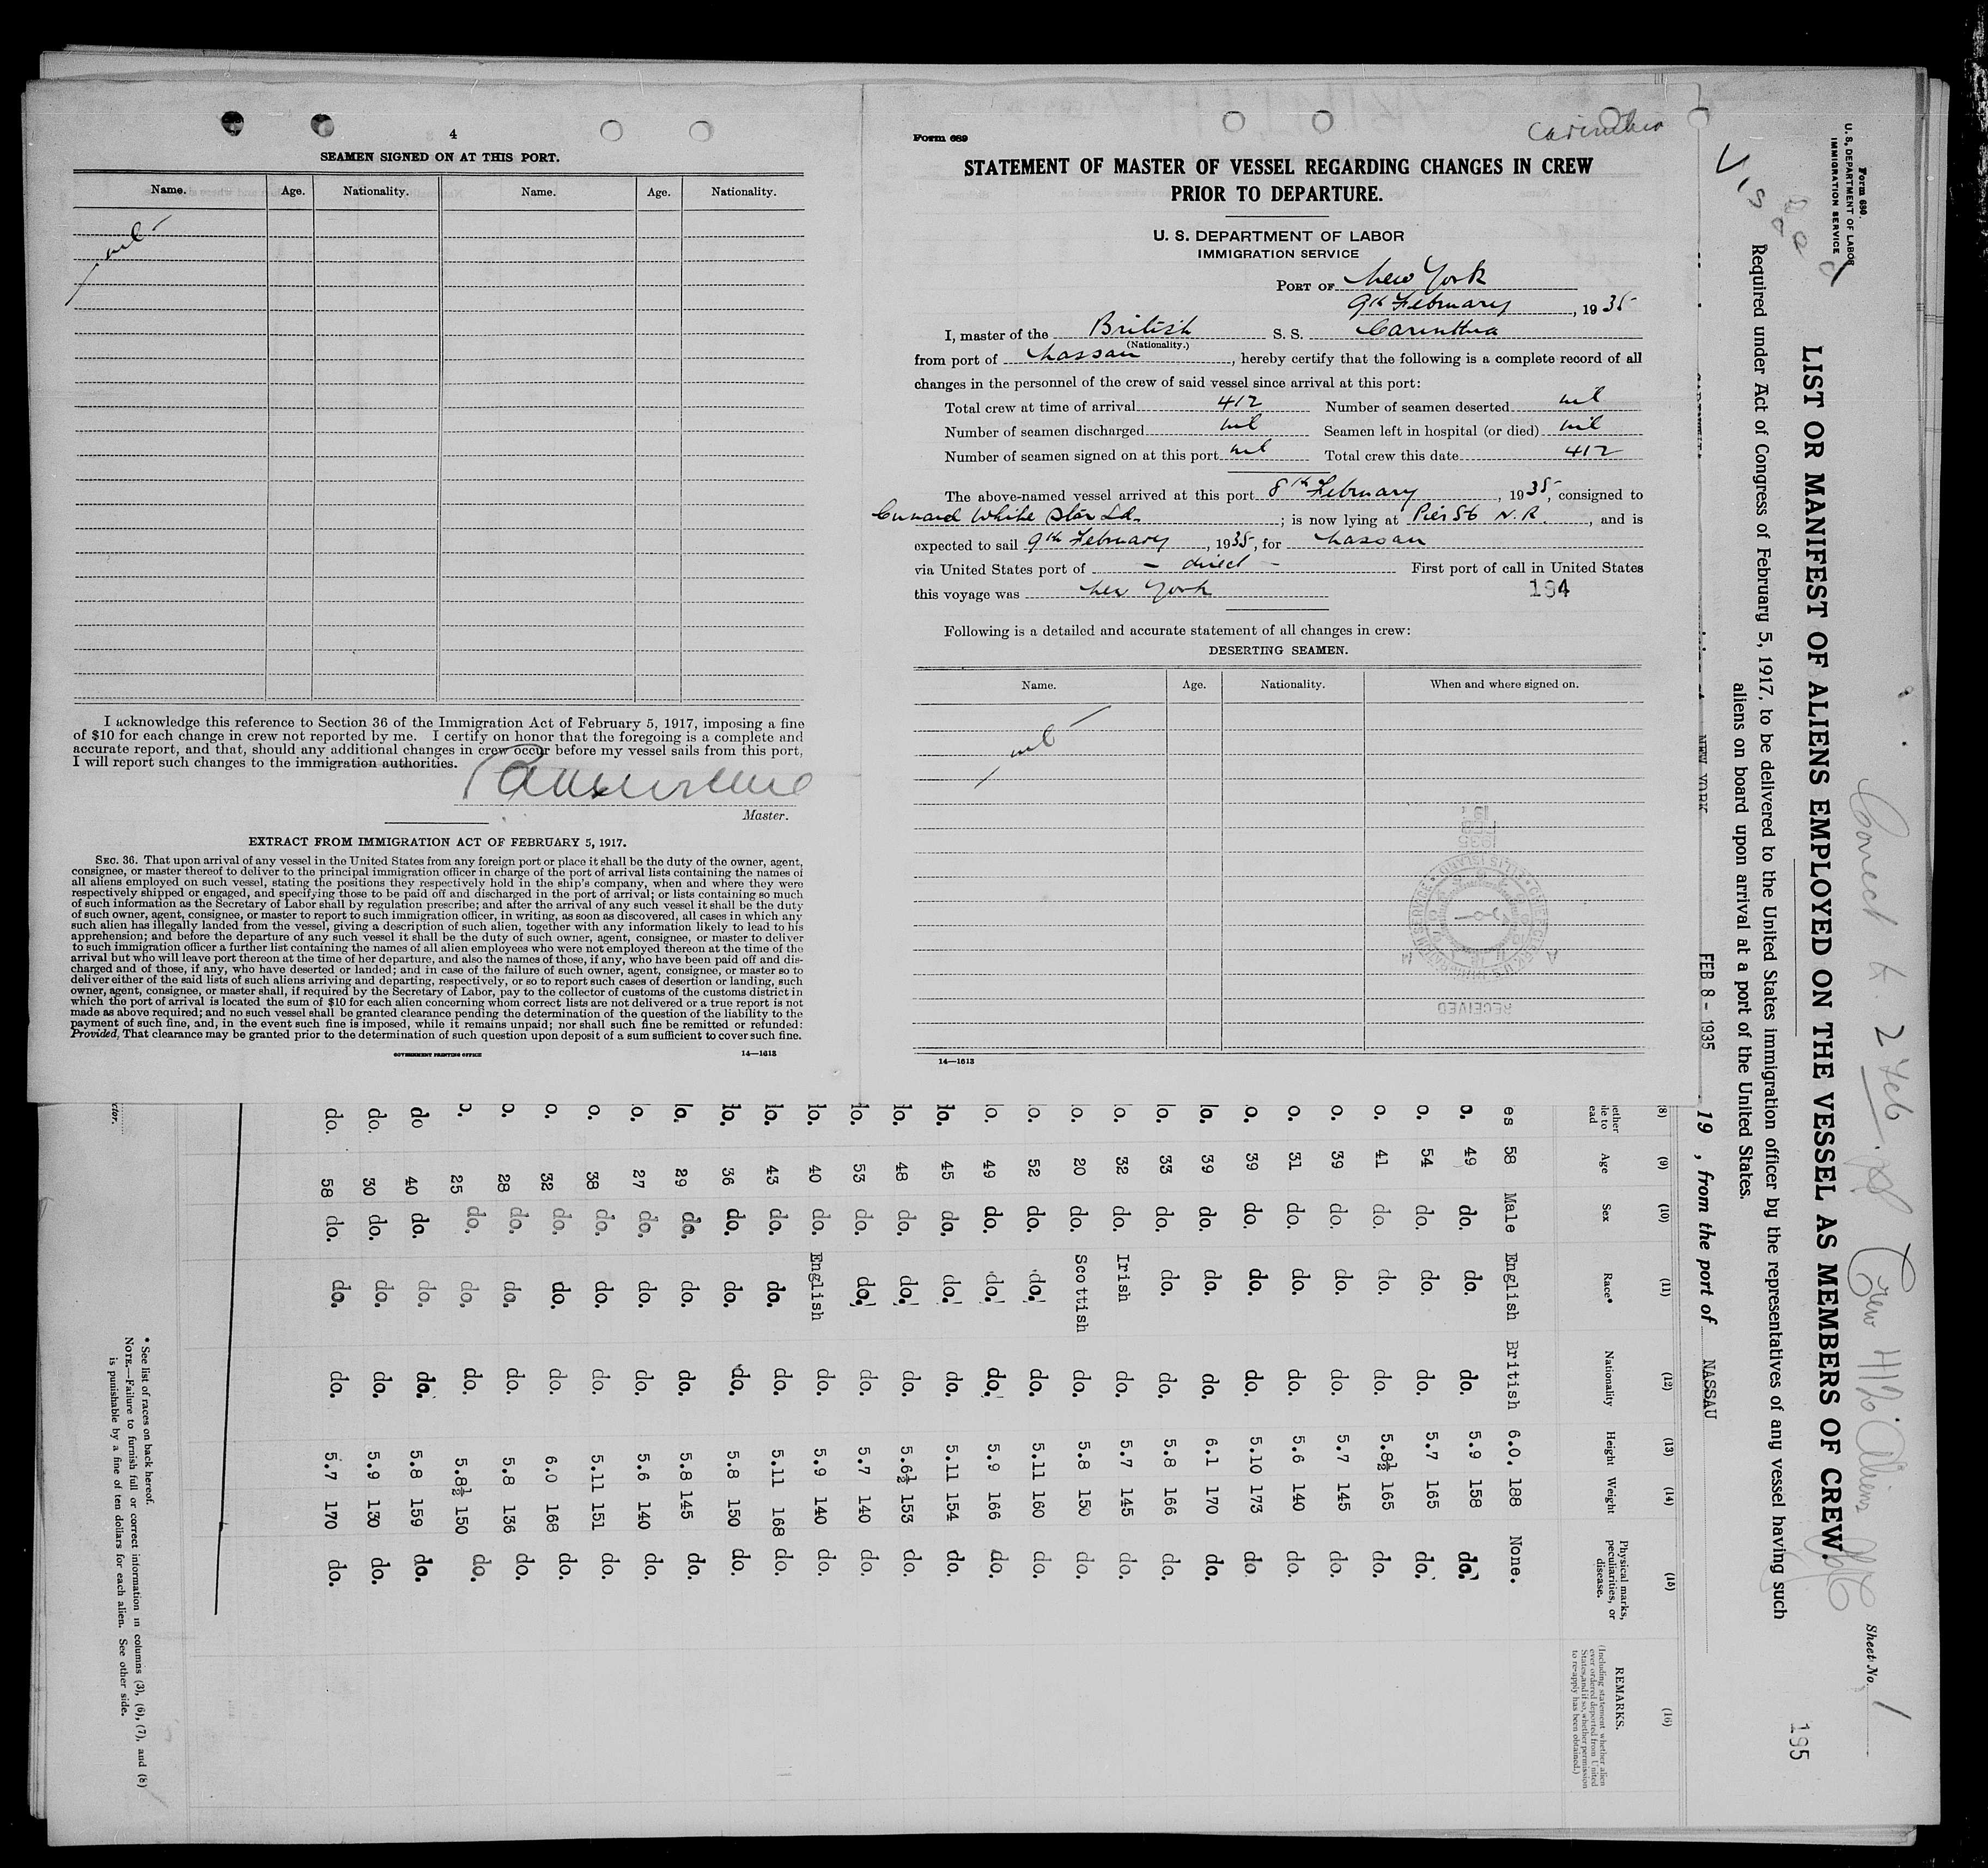 4
SEAMEN SIGNED ON AT THIS PORT.
Name. Age. Nationality. Name. Age. Nationality.
nil
I acknowledge this reference to Section 36 of the Immigration Act of February 5, 1917, imposing a fine
of $10 for each change in crew not reported by me. I certify on honor that the foregoing is a complete and
accurate report, and that, should any additional changes in crew occur before my vessel sails from this port,
I will report such changes to the immigration authorities.
Master.
EXTRACT FROM IMMIGRATION ACT OF FEBRUARY 5, 1917.
SEC. 36. That upon arrival of any vessel in the United States from any foreign port or place it shall be the duty of the owner, agent,
consignee, or master thereof to deliver to the principal immigration officer in charge of the port of arrival lists containing the names of
all aliens employed on such vessel, stating the positions they respectively hold in the ship's company, when and where they were
respectively shipped or engaged, and specifying those to be paid off and discharged in the port of arrival; or lists containing so much
of such information as the Secretary of Labor shall by regulation prescribe; and after the arrival of any such vessel it shall be the duty
of such owner, agent, consignee, or master to report to such immigration officer, in writing, as soon as discovered, all cases in which any
such alien has illegally landed from the vessel, giving a description of such alien, together with any information likely to lead to his
apprehension; and before the departure of any such vessel it shall be the duty of such owner, agent, consignee, or master to deliver
to such immigration officer a further list containing the names of all alien employees who were not employed thereon at the time of the
arrival but who will leave port thereon at the time of her departure, and also the names of those, if any, who have been paid off and dis-
charged and of those, if any, who have deserted or landed; and in case of the failure of such owner, agent, consignee, or master so to
deliver either of the said lists of such aliens arriving and departing, respectively, or so to report such cases of desertion or landing, such
owner, agent, consignee, or master shall, if required by the Secretary of Labor, pay to the collector of customs of the customs district in
which the port of arrival is located the sum of $10 for each alien concerning whom correct lists are not delivered or a true report is not
made as above required; and no such vessel shall be granted clearance pending the determination of the question of the liability to the
payment of such fine, and, in the event such fine is imposed, while it remains unpaid; nor shall such fine be remitted or refunded:
Provided, That clearance may be granted prior to the determination of such question upon deposit of a sum sufficient to cover such fine.
GOVERNMENT PRINTING OFFICE 14—1613
Form 689
Carinthia
STATEMENT OF MASTER OF VESSEL REGARDING CHANGES IN CREW
PRIOR TO DEPARTURE.
U. S. DEPARTMENT OF LABOR
IMMIGRATION SERVICE
PORT OF New York
9th February, 1935
I, master of the British S. S. Carinthia
(Nationality.)
from port of Nassau, hereby certify that the following is a complete record of all
changes in the personnel of the crew of said vessel since arrival at this port:
Total crew at time of arrival 412 Number of seamen deserted nil
Number of seamen discharged nil Seamen left in hospital (or died) nil
Number of seamen signed on at this port nil Total crew this date 412
The above-named vessel arrived at this port 8th February, 1935, consigned to
Cunard White Star Ld.; is now lying at Pier 56 N.R., and is
expected to sail 9th February, 1935, for Nassau
via United States port of — direct — First port of call in United States
this voyage was New York 194
Following is a detailed and accurate statement of all changes in crew:
DESERTING SEAMEN.
Name. Age. Nationality. When and where signed on.
nil
RECEIVED
14—1613
Form 680.
U. S. DEPARTMENT OF LABOR
IMMIGRATION SERVICE
Visaed
Sheet No. 1
195
LIST OR MANIFEST OF ALIENS EMPLOYED ON THE VESSEL AS MEMBERS OF CREW.
Required under Act of Congress of February 5, 1917, to be delivered to the United States immigration officer by the representatives of any vessel having such
aliens on board upon arrival at a port of the United States.
NEW YORK FEB 8 - 1935 19 , from the port of NASSAU
(8) (9) (10) (11) (12) (13) (14) (15) (16)
Age Sex Race* Nationality Height Weight Physical marks, peculiarities, or disease. REMARKS.
(Including statement whether alien
ever ordered deported from United
States, and if so, whether permission
to re-apply has been obtained.)
es 58 Male English British 6.0. 188 None.
o. 49 do. do. do. 5.9 158 do.
o. 54 do. do. do. 5.7 165 do.
o. 41 do. do. do. 5.8½ 165 do.
o. 39 do. do. do. 5.7 145 do.
o. 31 do. do. do. 5.6 140 do.
o. 39 do. do. do. 5.10 173 do.
lo. 39 do. do. do. 6.1 170 do.
lo. 33 do. do. do. 5.8 166 do.
lo. 32 do. Irish do. 5.7 145 do.
lo. 20 do. Scottish do. 5.8 150 do.
lo. 52 do. do. do. 5.11 160 do.
lo. 49 do. do. do. 5.9 166 do.
lo. 45 do. do. do. 5.11 154 do.
lo. 48 do. do. do. 5.6½ 153 do.
lo. 53 do. do. do. 5.7 140 do.
lo. 40 do. English do. 5.9 140 do.
lo. 43 do. do. do. 5.11 168 do.
lo. 36 do. do. do. 5.8 150 do.
lo. 29 do. do. do. 5.8 145 do.
lo. 27 do. do. do. 5.6 140 do.
o. 38 do. do. do. 5.11 151 do.
o. 32 do. do. do. 6.0 168 do.
o. 28 do. do. do. 5.8 136 do.
o. 25 do. do. do. 5.8½ 150 do.
do 40 do. do. do. 5.8 159 do.
do. 30 do. do. do. 5.9 130 do.
do. 58 do. do. do. 5.7 170 do.
* See list of races on back hereof.
NOTE.—Failure to furnish full or correct information in columns (3), (6), (7), and (8)
is punishable by a fine of ten dollars for each alien. See other side.